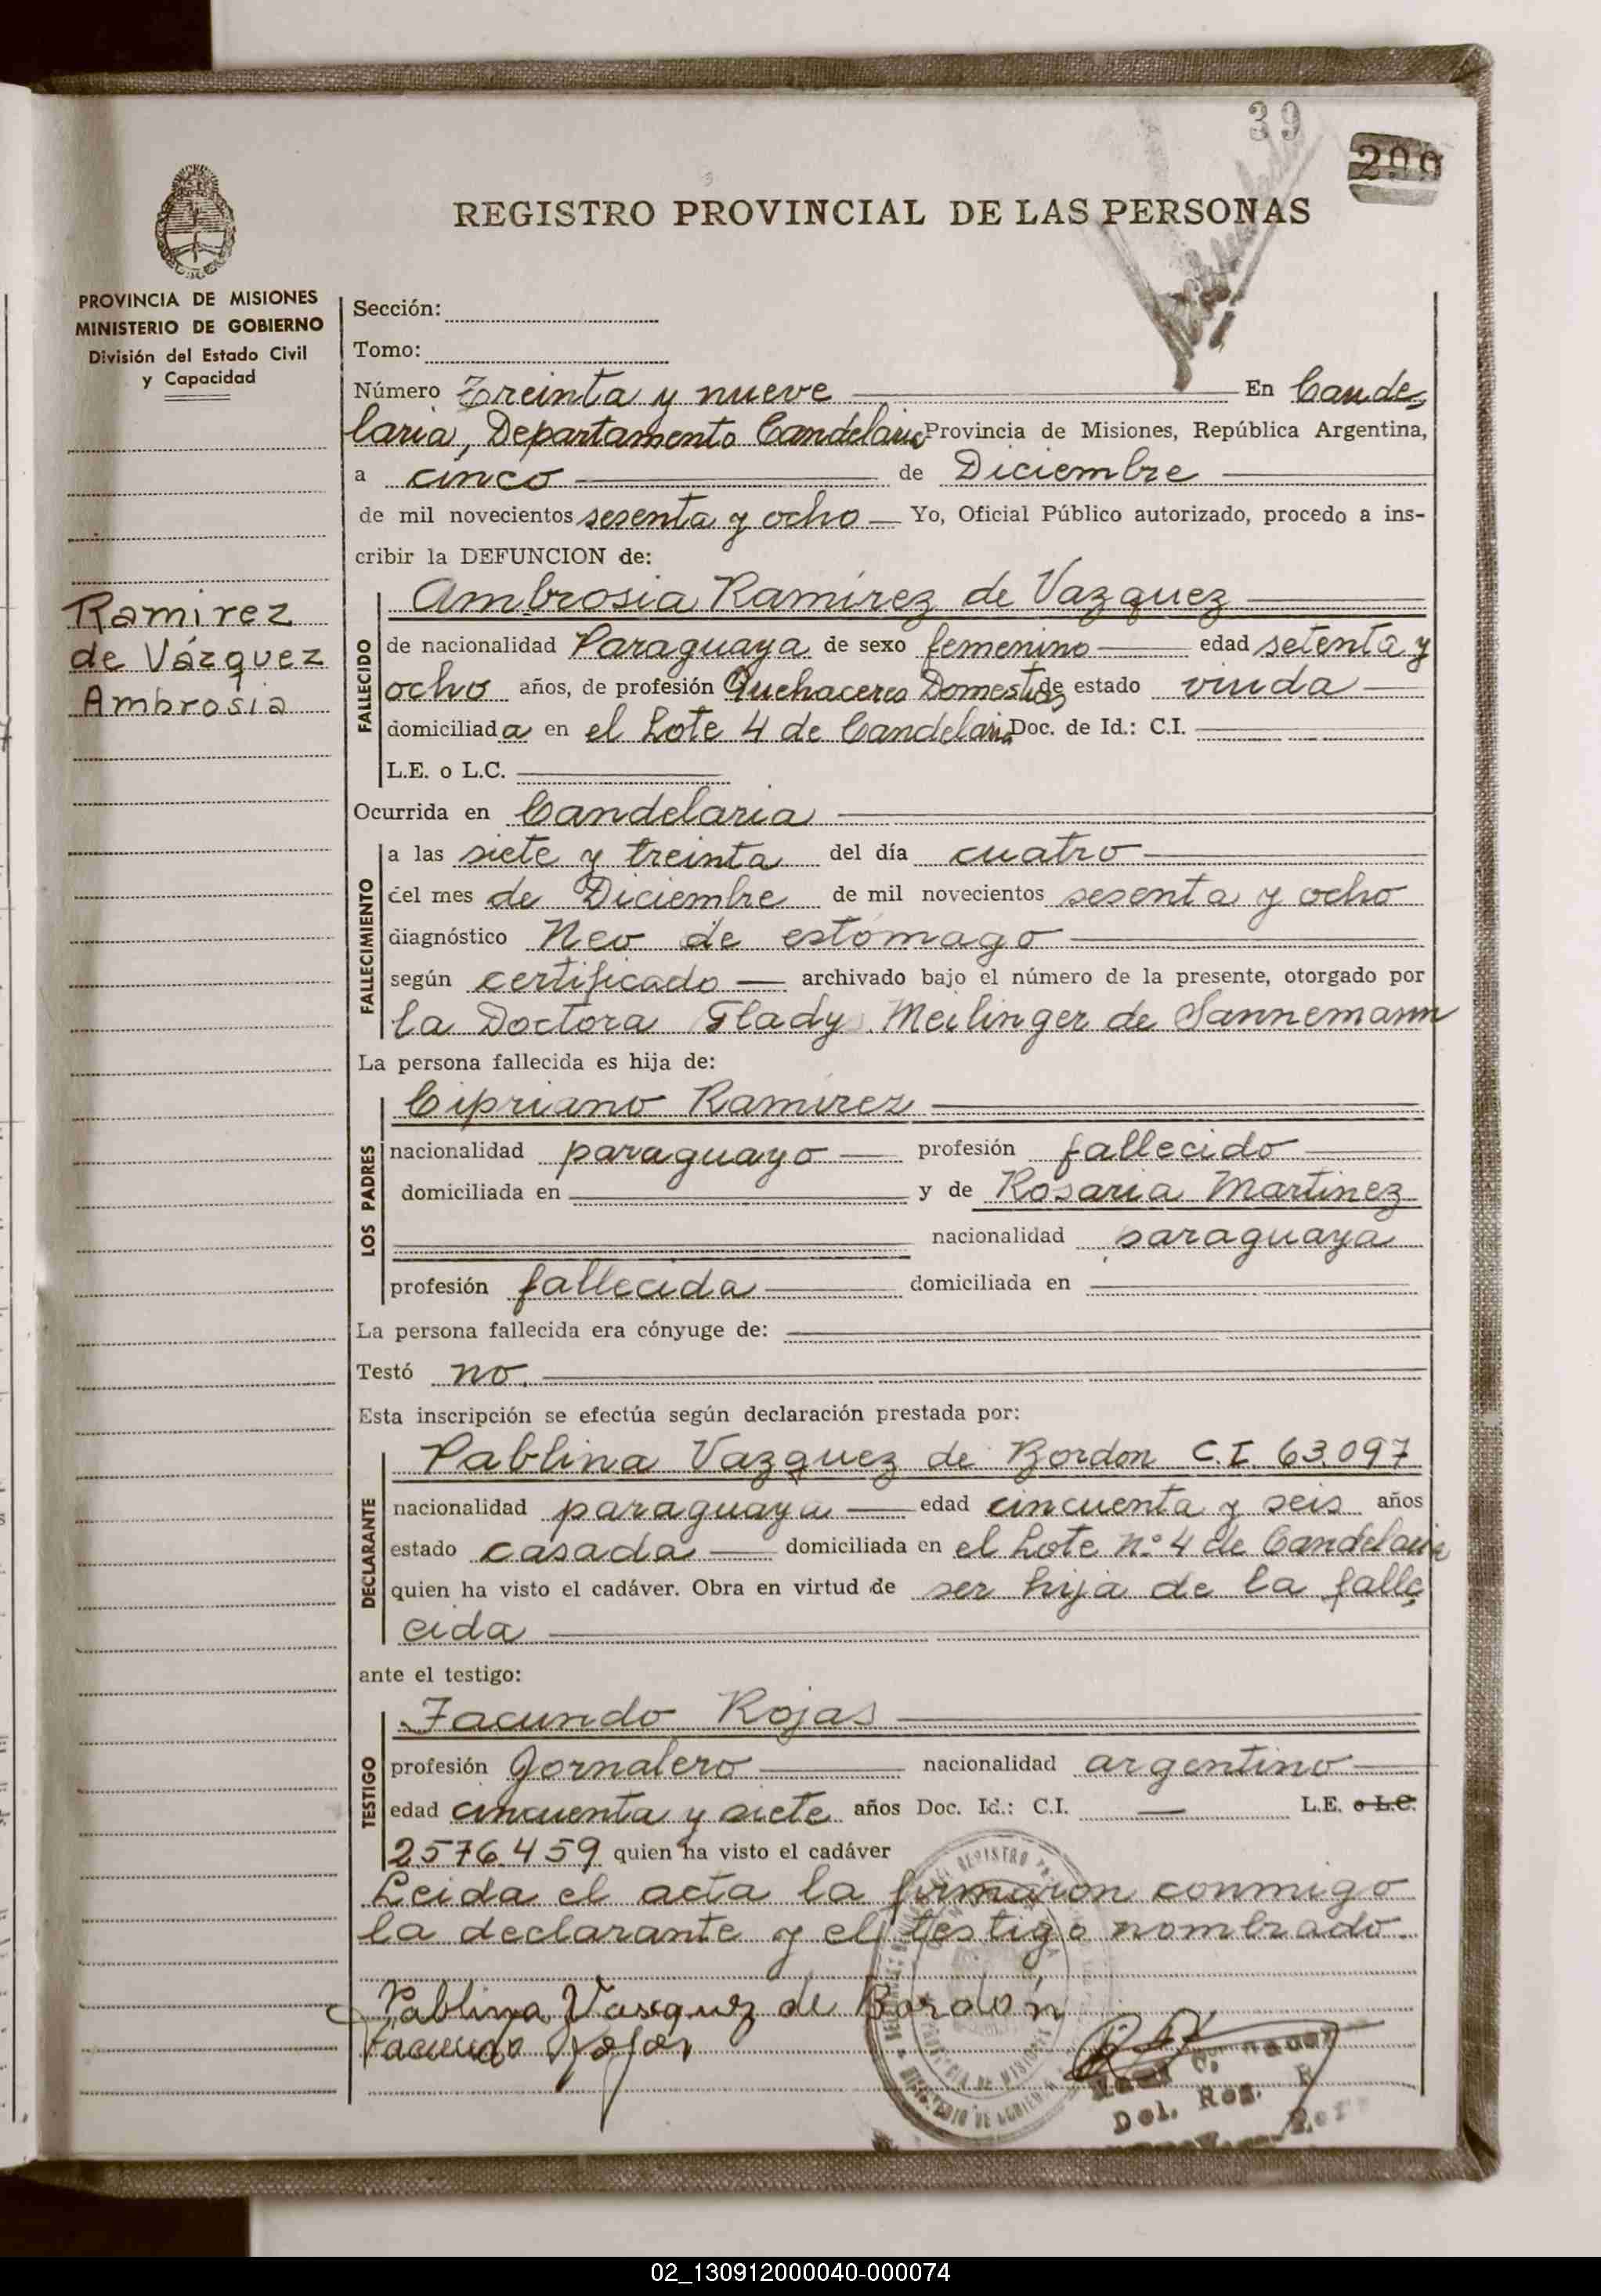 39
299
REGISTRO PROVINCIAL DE LAS PERSONAS
PROVINCIA DE MISIONES
MINISTERIO DE GOBIERNO
División del Estado Civil
y Capacidad
Ramirez
de Vázquez
Ambrosia
Sección:
Tomo:
Número Treinta y nueve En Cande
laria, Departamento Candelaria Provincia de Misiones, República Argentina,
a cinco de Diciembre
de mil novecientos sesenta y ocho Yo, Oficial Público autorizado, procedo a ins-
cribir la DEFUNCION de:
FALLECIDO
Ambrosia Ramírez de Vazquez
de nacionalidad Paraguaya de sexo femenino edad setenta y
ocho años, de profesión Quehaceres Domesticos de estado viuda
domiciliada en el Lote 4 de Candelaria Doc. de Id.: C.I.
L.E. o L.C.
Ocurrida en Candelaria
FALLECIMIENTO
a las siete y treinta del día cuatro
del mes de Diciembre de mil novecientos sesenta y ocho
diagnóstico Neo de estómago
según certificado archivado bajo el número de la presente, otorgado por
la Doctora Glady Meilinger de Sannemann
La persona fallecida es hija de:
LOS PADRES
Cipriano Ramirez
nacionalidad paraguayo profesión fallecido
domiciliada en y de Rosaria Martinez
nacionalidad paraguaya
profesión fallecida domiciliada en
La persona fallecida era cónyuge de:
Testó no.
Esta inscripción se efectúa según declaración prestada por:
DECLARANTE
Pablina Vazquez de Bordon C.I. 63.097
nacionalidad paraguaya edad cincuenta y seis años
estado casada domiciliada en el Lote n.º 4 de Candelaria
quien ha visto el cadáver. Obra en virtud de ser hija de la falle
cida
ante el testigo:
TESTIGO
Facundo Rojas
profesión Jornalero nacionalidad argentino
edad cincuenta y siete años Doc. Id.: C.I. — L.E. o L.C.
2.576.459 quien ha visto el cadáver
Leida el acta la firmaron conmigo
la declarante y el testigo nombrado.
Pablina Vasquez de Bordón
Facundo Rojas
Del. Reg.
02_130912000040-000074